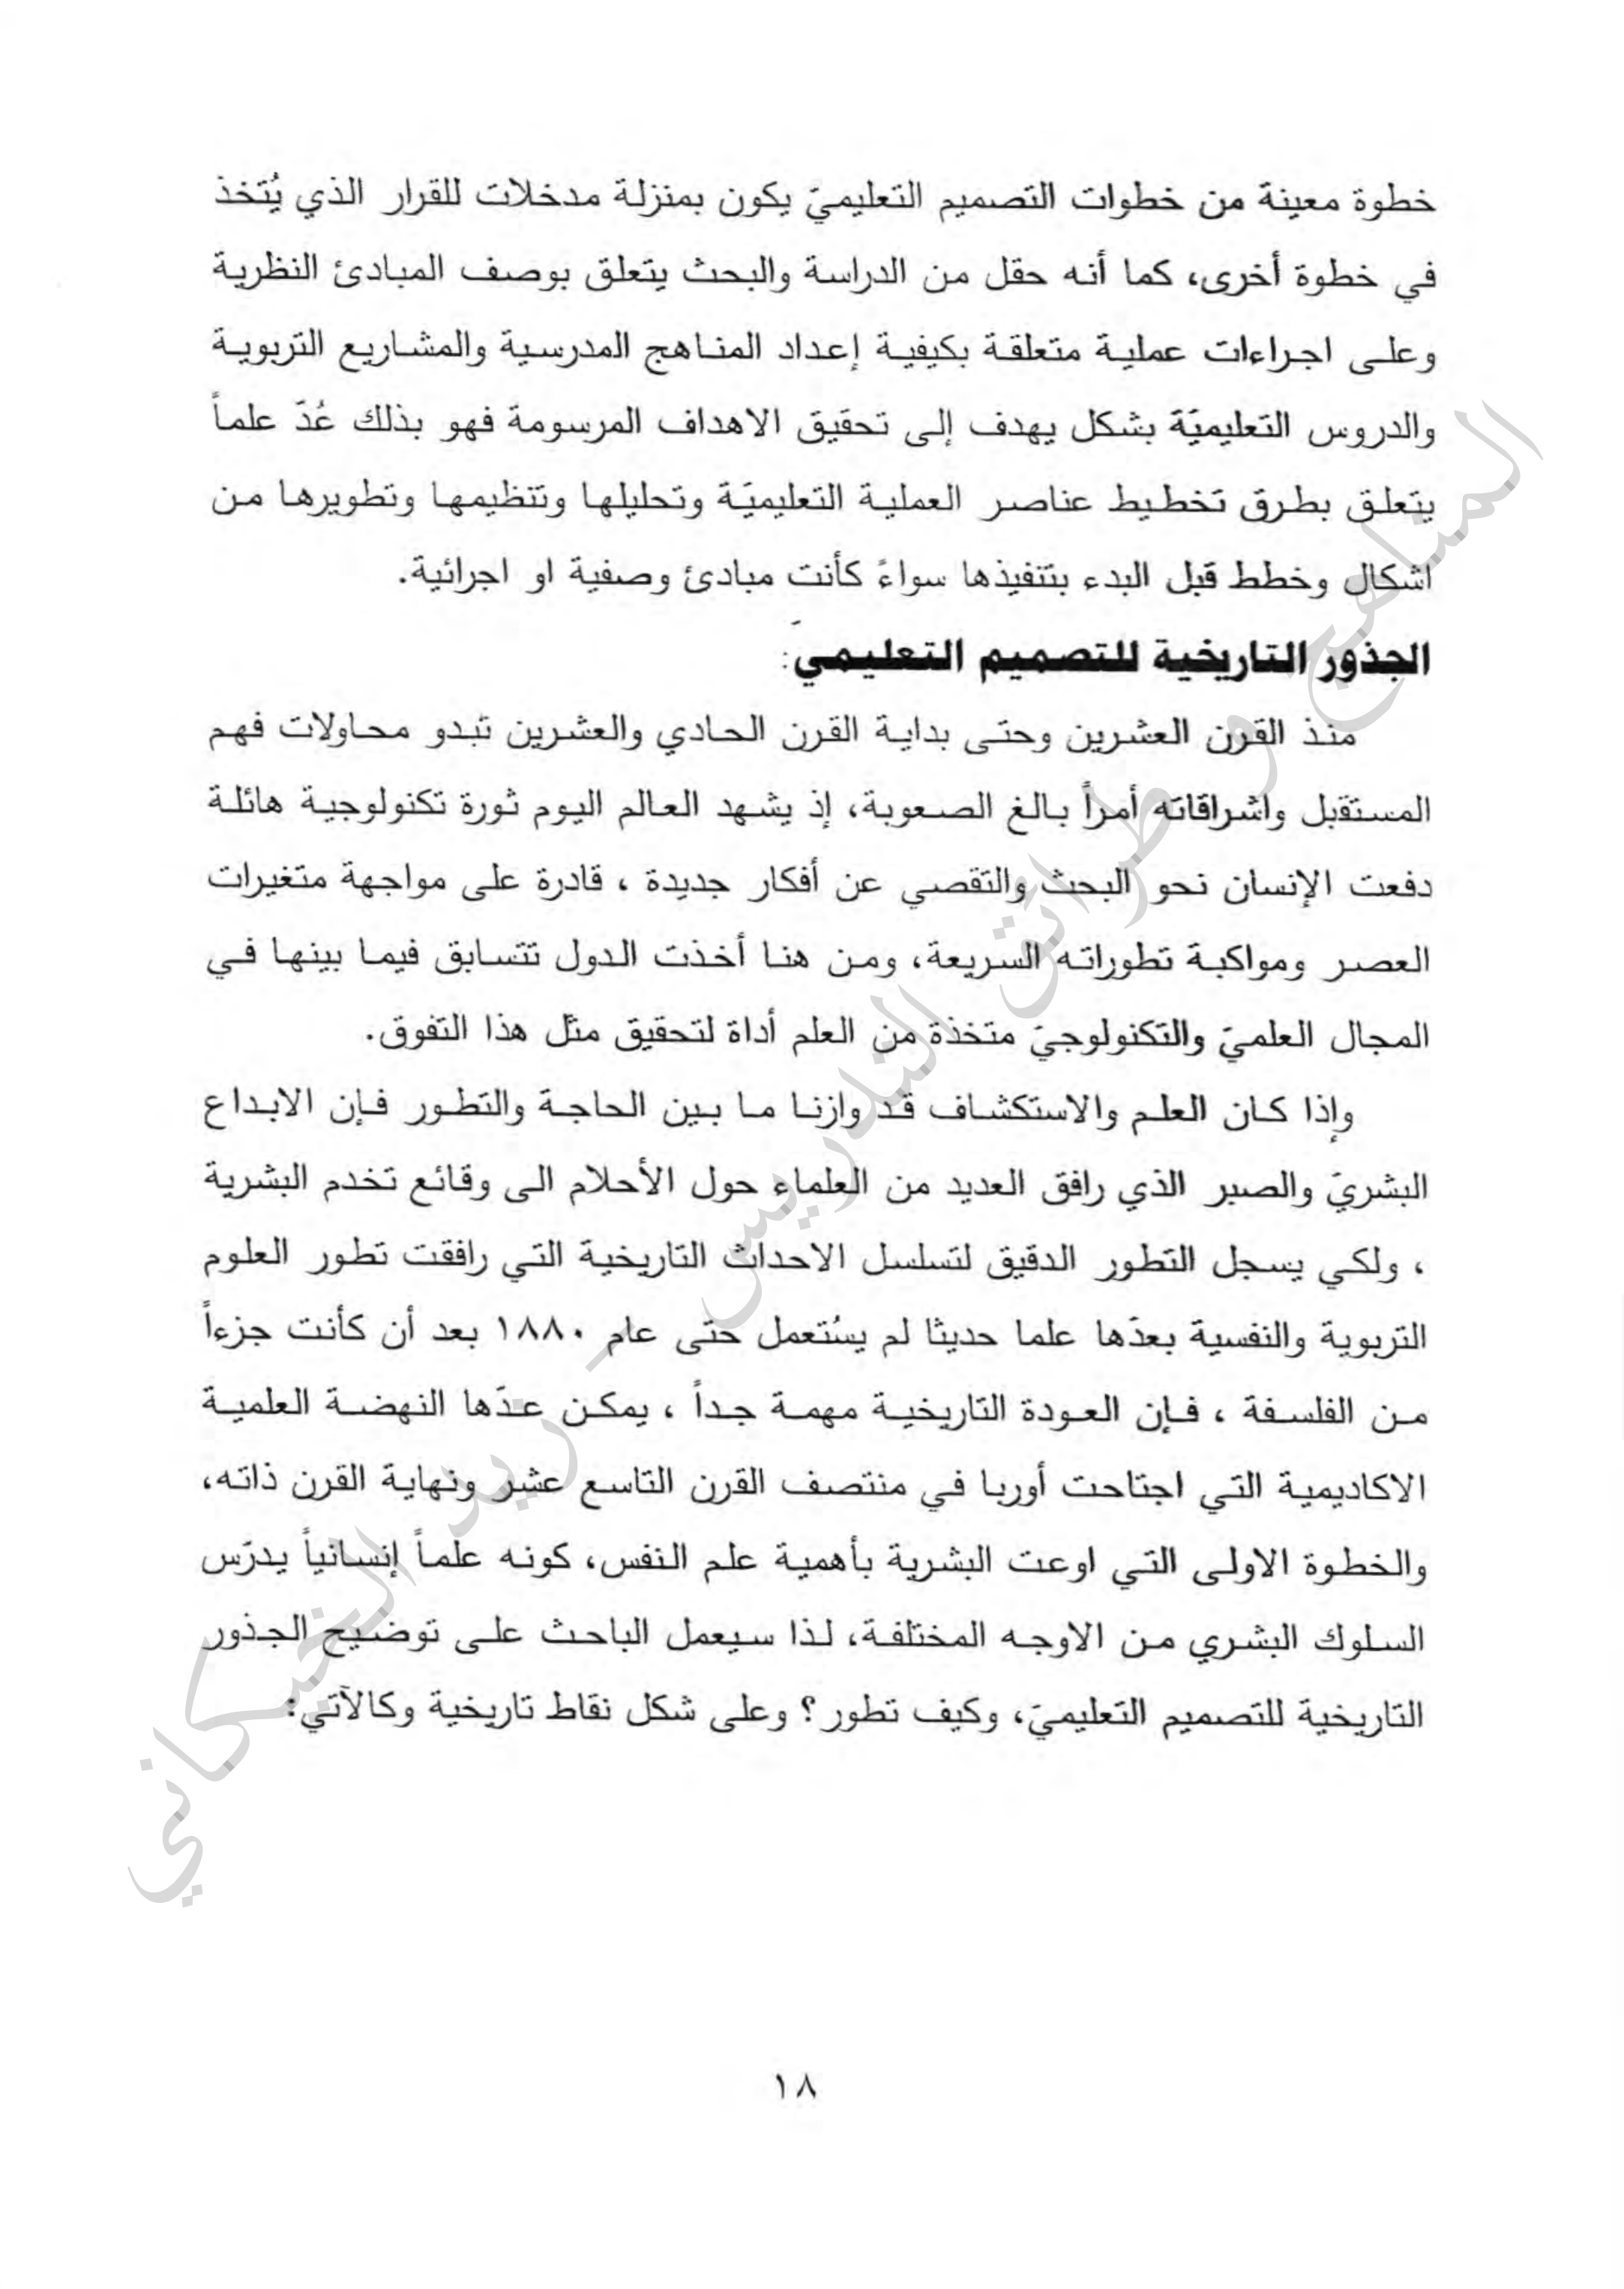 خطوة معينة من خطوات التصميم التعليميّ يكون بمنزلة مدخلات للقرار الذي يُتخذ
في خطوة أخرى، كما أنه حقل من الدراسة والبحث يتعلق بوصف المبادئ النظرية
وعلى اجراءات عملية متعلقة بكيفية إعداد المناهج المدرسية والمشاريع التربوية
والدروس التعليميّة بشكل يهدف إلى تحقيق الاهداف المرسومة فهو بذلك عُدّ علماً
يتعلق بطرق تخطيط عناصر العملية التعليميّة وتحليلها وتنظيمها وتطويرها من
اشكال وخطط قبل البدء بتنفيذها سواءً كأنت مبادئ وصفية او اجرائية.
الجذور التاريخية للتصميم التعليميّ:
منذ القرن العشرين وحتى بداية القرن الحادي والعشرين تبدو محاولات فهم
المستقبل واشراقاته أمراً بالغ الصعوبة، إذ يشهد العالم اليوم ثورة تكنولوجية هائلة
دفعت الإنسان نحو البحث والتقصي عن أفكار جديدة ، قادرة على مواجهة متغيرات
العصر ومواكبة تطوراته السريعة، ومن هنا أخذت الدول تتسابق فيما بينها في
المجال العلميّ والتكنولوجيّ متخذة من العلم أداة لتحقيق مثل هذا التفوق.
وإذا كان العلم والاستكشاف قد وازنا ما بين الحاجة والتطور فإن الابداع
البشريّ والصبر الذي رافق العديد من العلماء حول الأحلام الى وقائع تخدم البشرية
، ولكي يسجل التطور الدقيق لتسلسل الاحداث التاريخية التي رافقت تطور العلوم
التربوية والنفسية بعدّها علما حديثا لم يسُتعمل حتى عام ١٨٨٠ بعد أن كأنت جزءاً
من الفلسفة ، فإن العودة التاريخية مهمة جداً ، يمكن عدّها النهضة العلمية
الاكاديمية التي اجتاحت أوربا في منتصف القرن التاسع عشر ونهاية القرن ذاته،
والخطوة الاولى التي اوعت البشرية بأهمية علم النفس، كونه علماً إنسانياً يدرّس
السلوك البشري من الاوجه المختلفة، لذا سيعمل الباحث على توضيح الجذور
التاريخية للتصميم التعليميّ، وكيف تطور؟ وعلى شكل نقاط تاريخية وكالآتي:
١٨
المناهج و طرائق التدريس - زيد الخيكاني